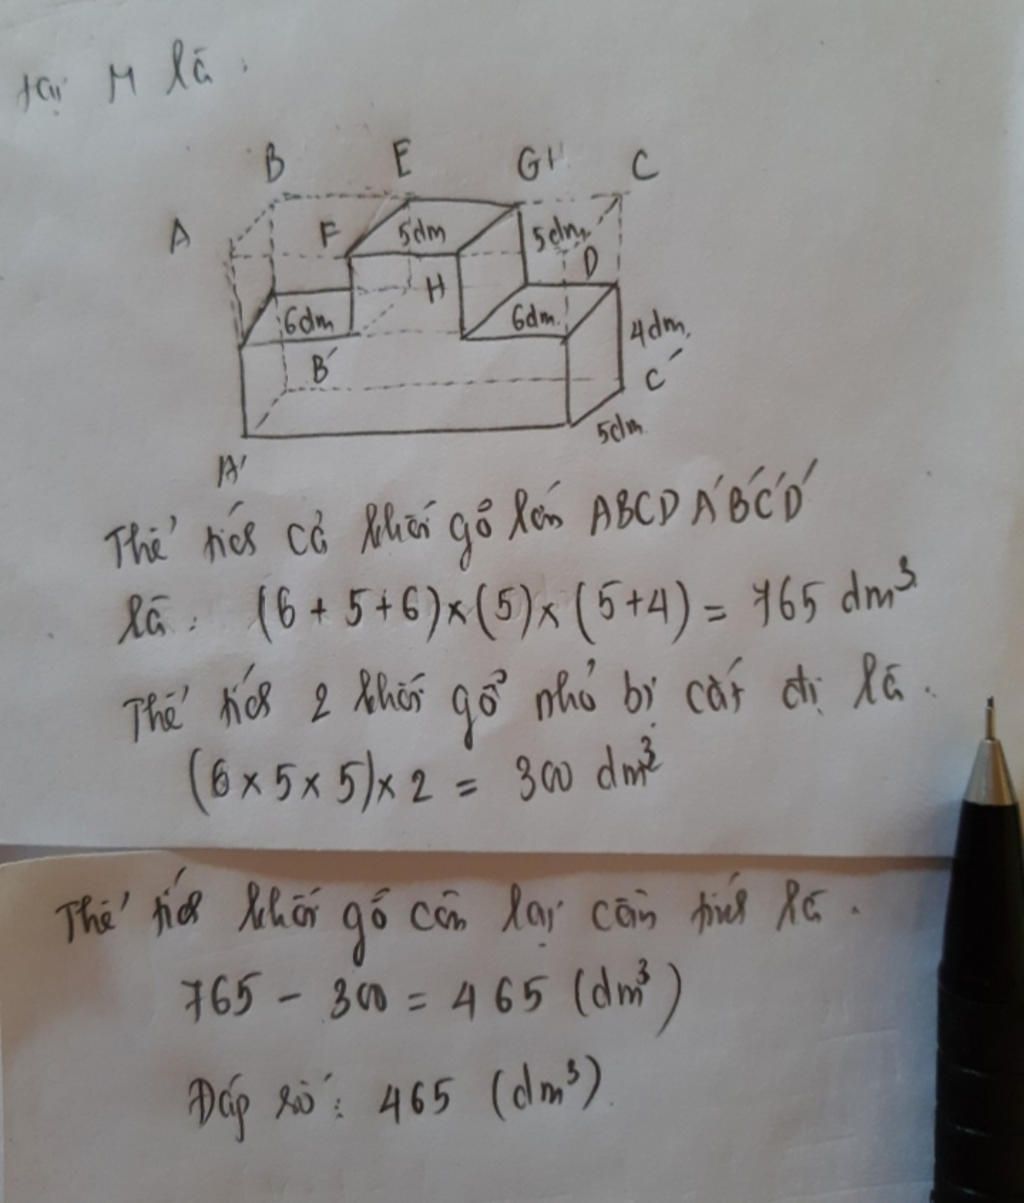 tại M là:
B E G H C
A F 5dm 5dm D
H
6dm 6dm 4dm
B' C'
5dm
A'
Thể tích cả khối gỗ lớn ABCD A'B'C'D'
là: (6 + 5 + 6) × (5) × (5+4) = 765 dm³
Thể tích 2 khối gỗ nhỏ bị cắt đi là.
(6 × 5 × 5) × 2 = 300 dm³
Thể tích khối gỗ còn lại cần tính là.
765 - 300 = 465 (dm³)
Đáp số: 465 (dm³).